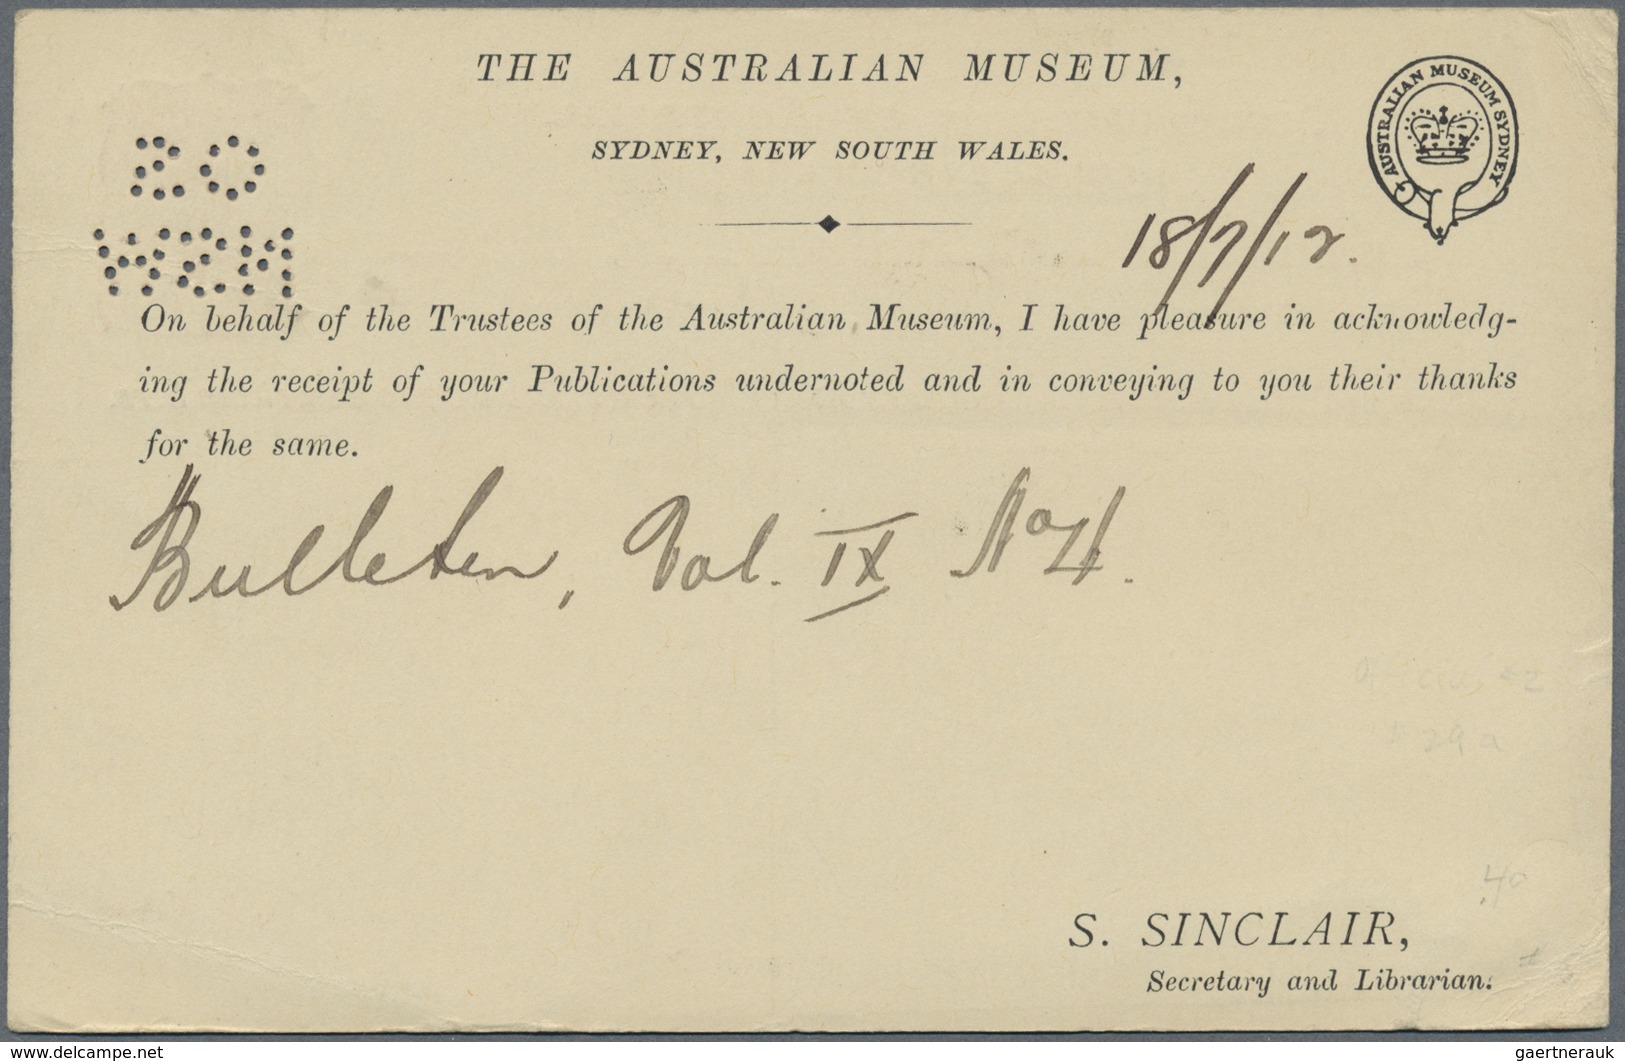 THE AUSTRALIAN MUSEUM,
SYDNEY, NEW SOUTH WALES.
AUSTRALIAN MUSEUM SYDNEY
18/7/12.
On behalf of the Trustees of the Australian Museum, I have pleasure in acknowledg-
ing the receipt of your Publications undernoted and in conveying to you their thanks
for the same.
Bulletin, Vol. IX No 4.
29a
40
S. SINCLAIR,
Secretary and Librarian.
www.delcampe.net
gaertnerauk